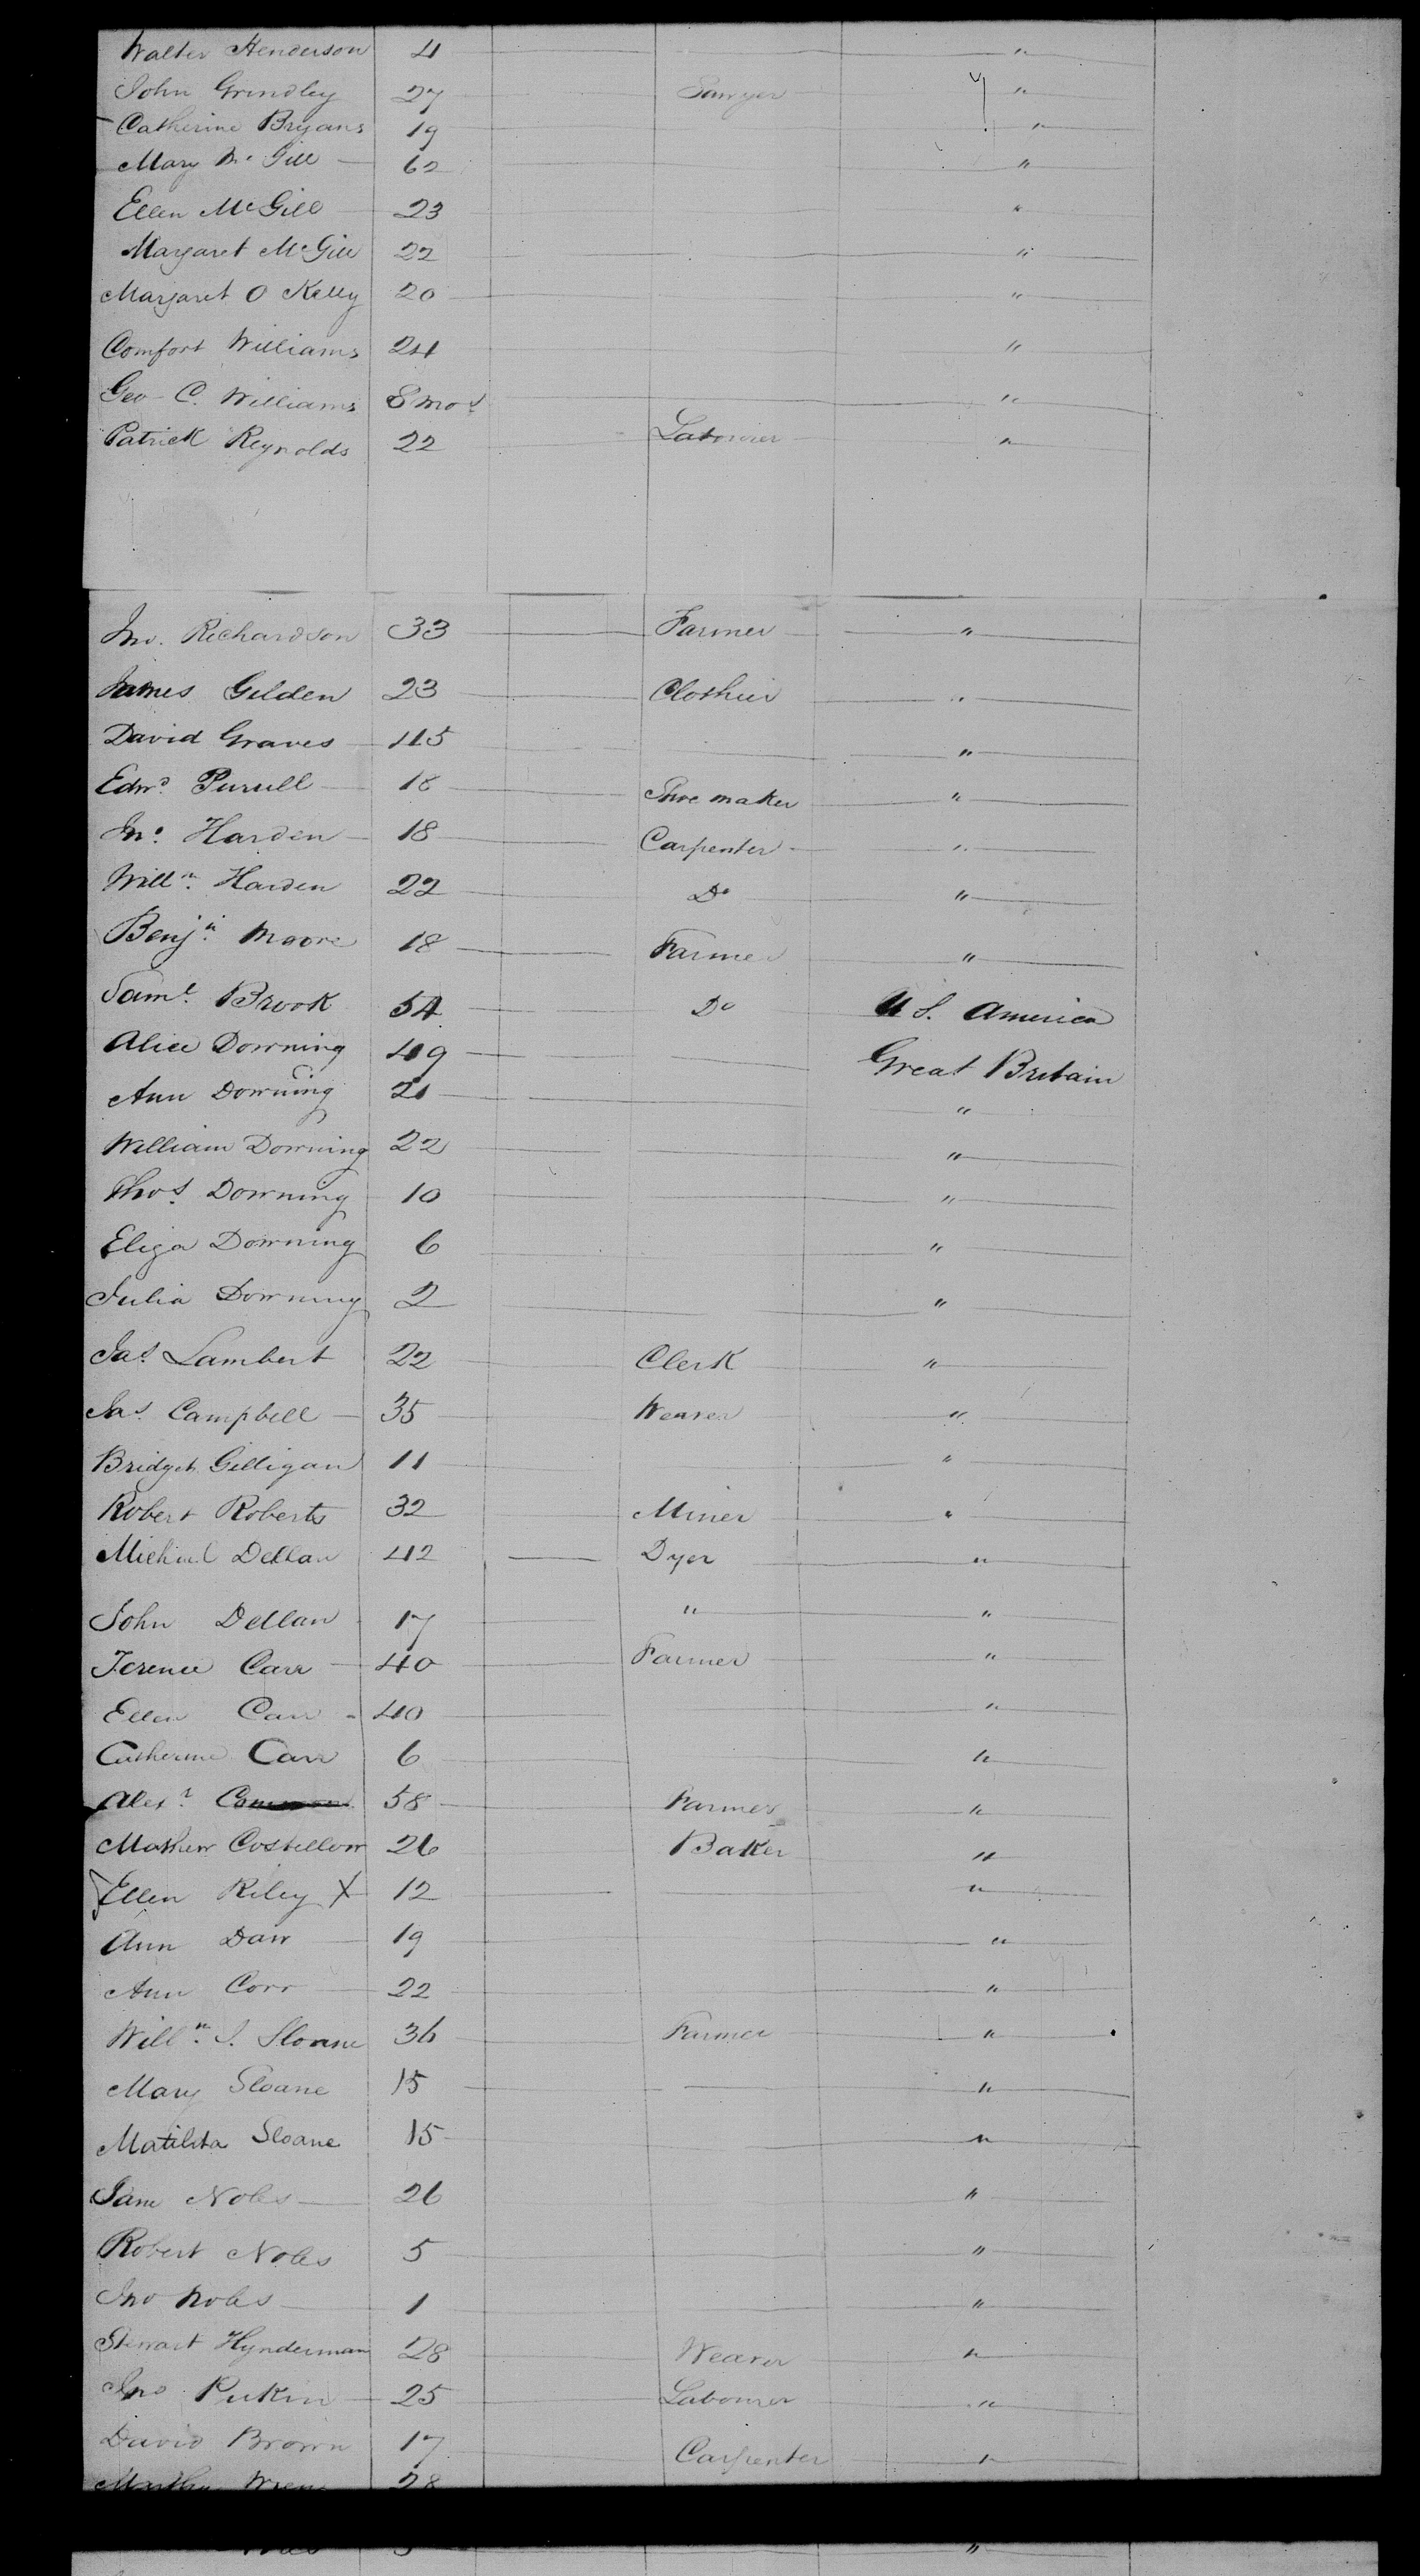 Walter Henderson 4 "
John Grindley 27 Sawyer "
Catherine Bryans 19 "
Mary McGill 62 "
Ellen McGill 23 "
Margaret McGill 22 "
Margaret O Kelly 20 "
Comfort Williams 24 "
Geo C. Williams 8 mos "
Patrick Reynolds 22 Labourer "
Jno. Richardson 33 Farmer "
James Gilden 23 Clothier "
David Graves 45 "
Edwd. Purcell 18 Shoe maker "
Jno. Harden 18 Carpenter "
Willm. Harden 22 Do "
Benjn. Moore 18 Farmer "
Saml. Brook 54 Do U S. America
Alice Downing 49 Great Britain
Ann Downing 21 "
William Downing 22 "
Thos. Downing 10 "
Eliza Downing 6 "
Julia Downing 2 "
Jas. Lambert 22 Clerk "
Jas. Campbell 35 Weaver "
Bridget Gilligan 11 "
Robert Roberts 32 Miner "
Michael Dellan 42 Dyer "
John Dellan 17 " "
Terence Carr 40 Farmer "
Ellen Carr 40 "
Catherine Carr 6 "
Alexr. 58 Farmer "
Mathew Costellow 26 Baker "
Ellen Riley X 12 "
Ann Daw 19 "
Ann Corr 22 "
Willm. J. Sloane 36 Farmer "
Mary Sloane 15 "
Matilda Sloane 15 "
Jane Nobes 26 "
Robert Nobes 5 "
Jno Nobes 1 "
Stewart Hynderman 28 Weaver "
Jno 25 Labourer "
David Brown 17 Carpenter "
28